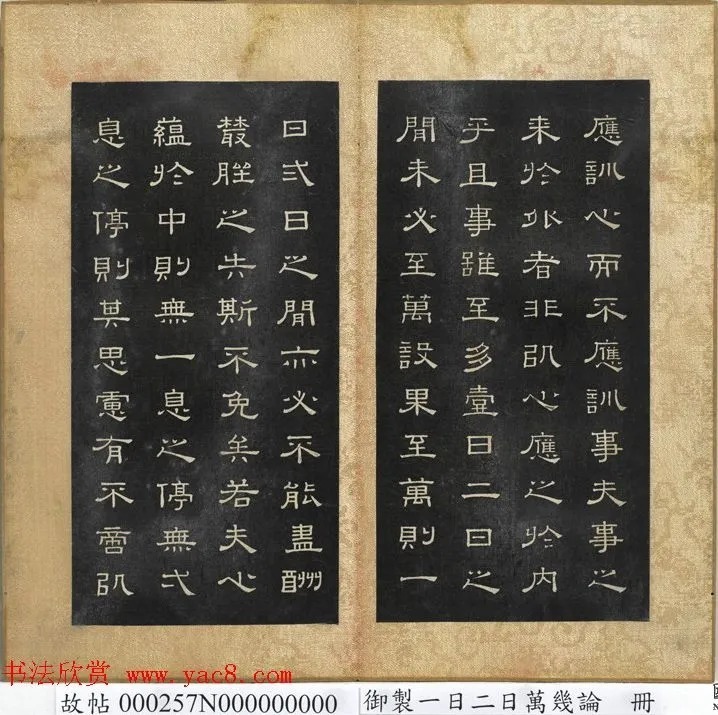 應訓心而不應訓事夫事之
来於外者非以心應之於内
乎且事雖至多壹日二日之
閒未必至萬設果至萬則一
日弍日之閒亦必不能盡酬
叢脞之失斯不免矣若夫心
蘊於中則無一息之停無弌
息之停則其思慮有不啻以
书法欣赏 www.yac8.com
故帖 000257N000000000 御製一日二日萬幾論 冊